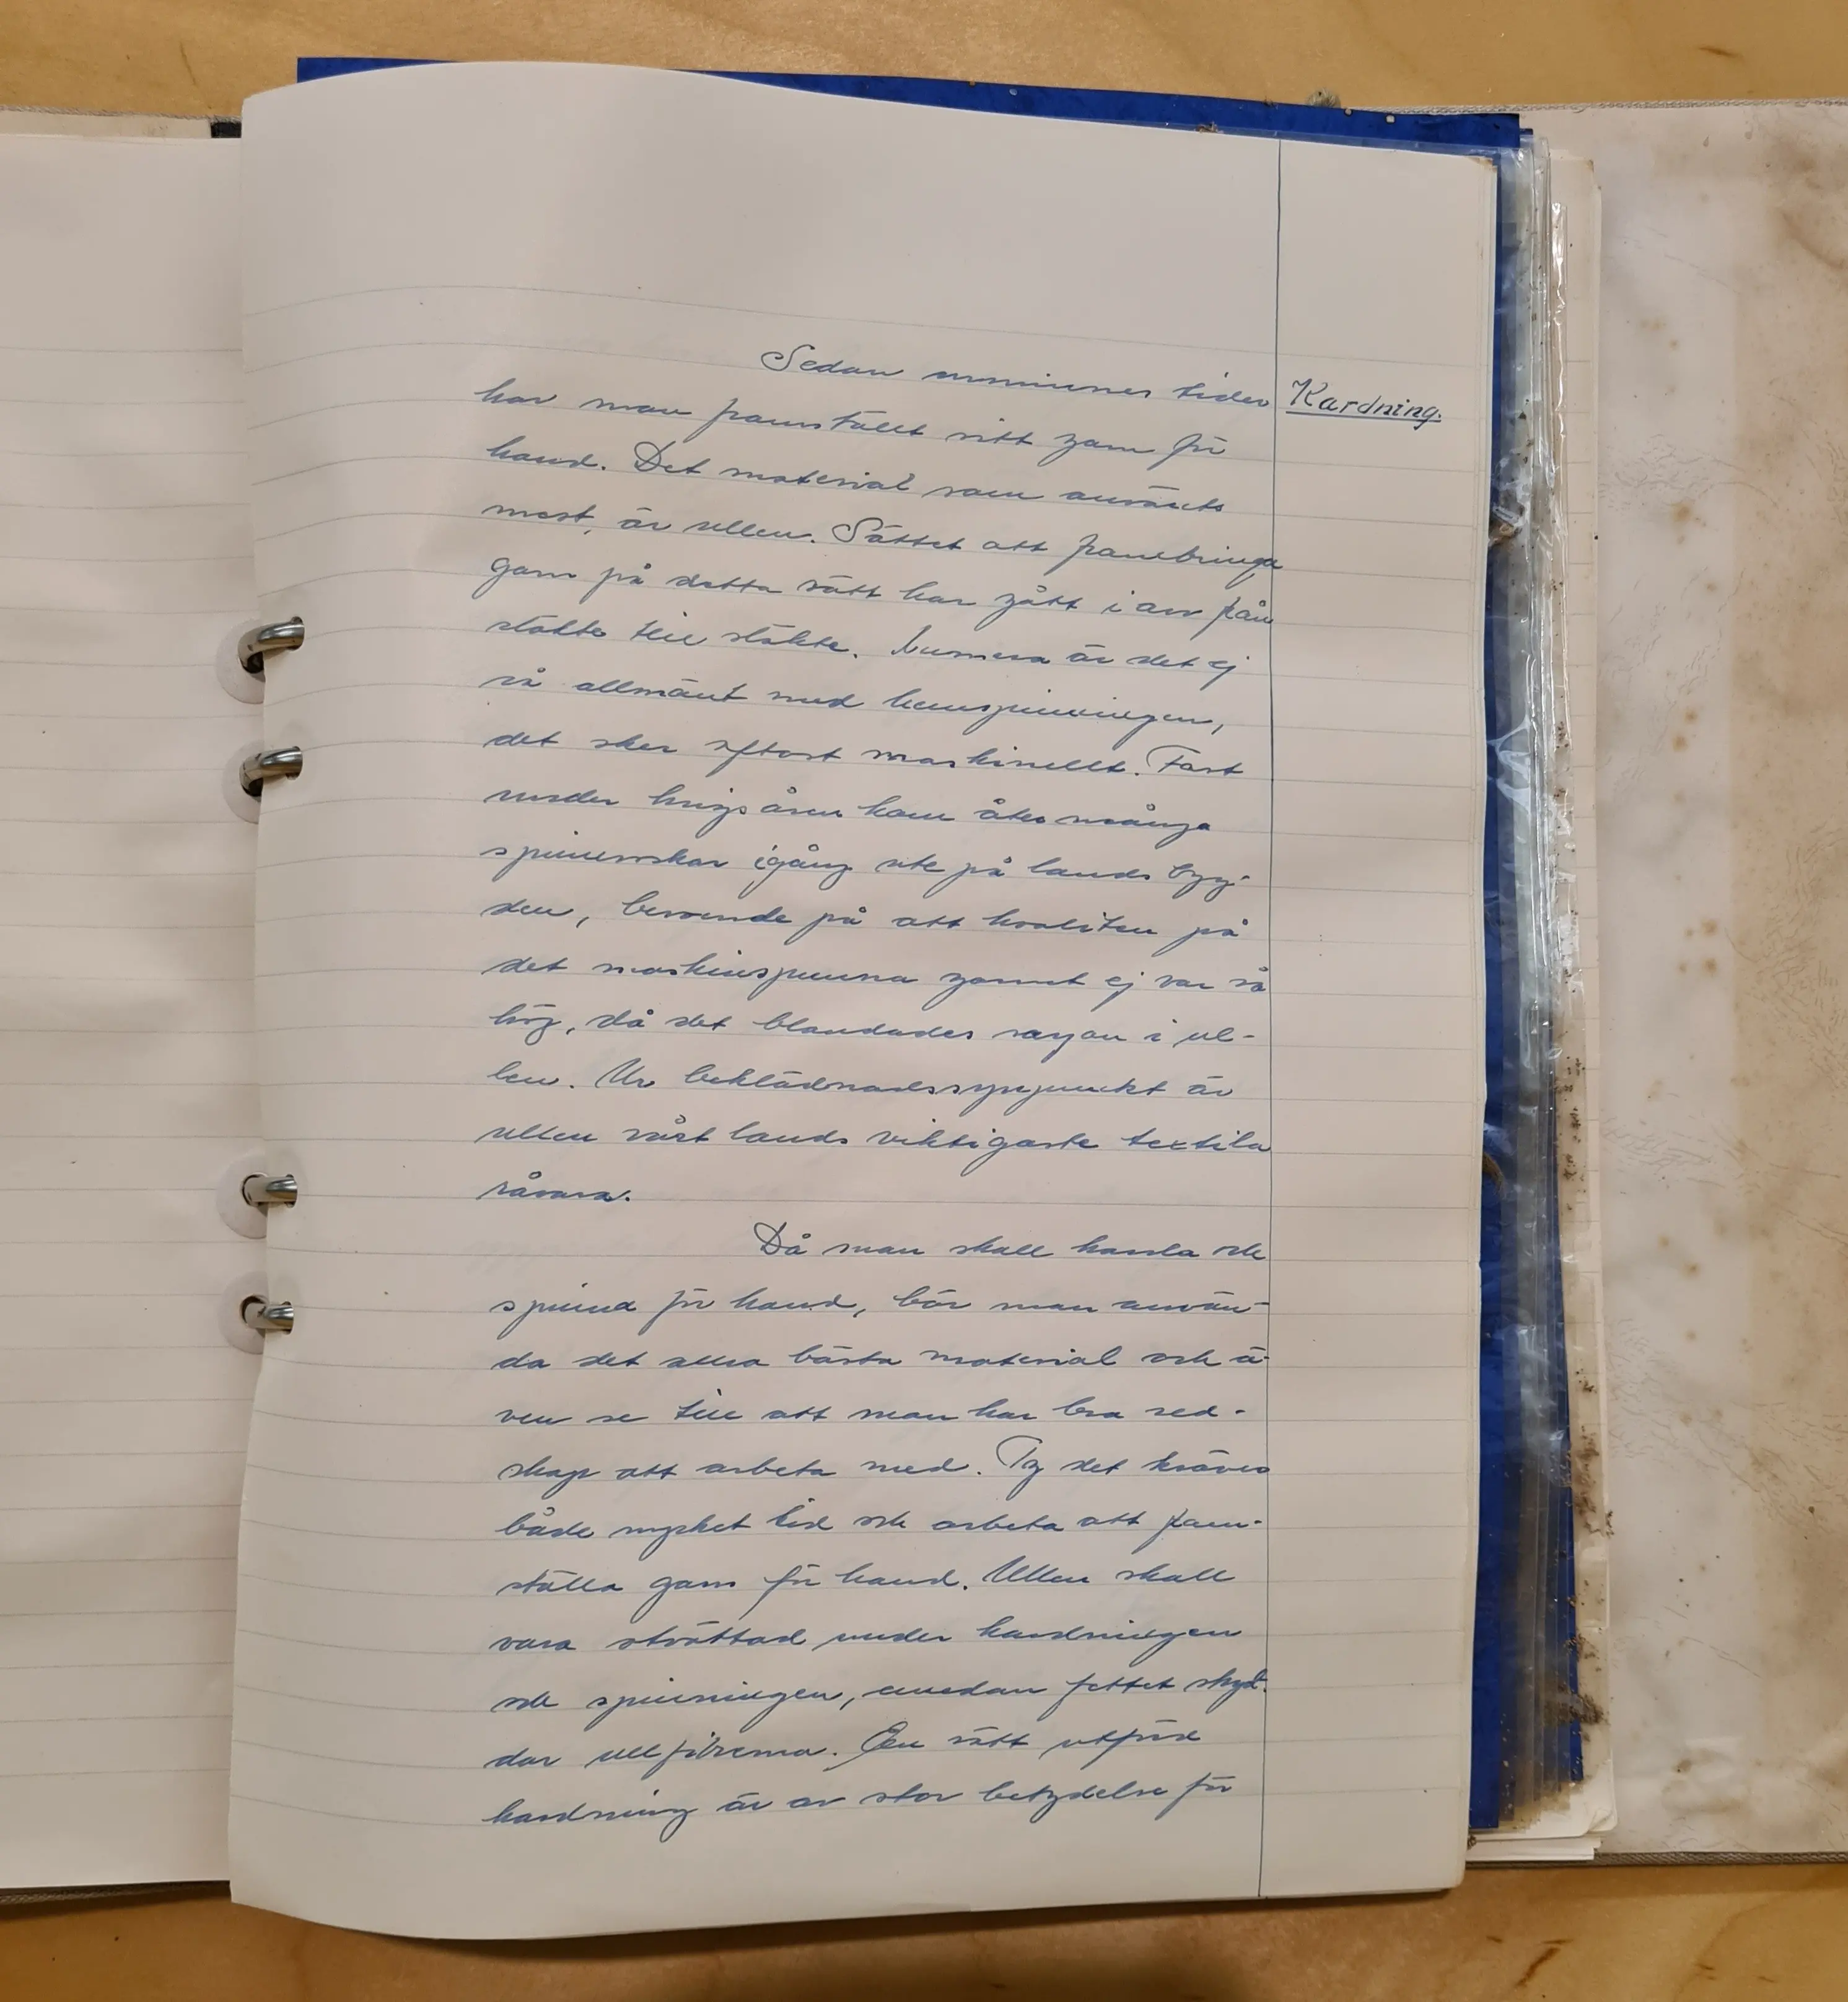 Sedan urminnes tider
Kardning.
har man framställt sitt garn för
hand. Det material som använts
mest, är ullen. Sättet att frambringa
garn på detta sätt har gått i arv från
släkte till släkte. Numera är det ej
så allmänt med hemspinningen,
det sker oftast maskinellt. Fast
under krigsåren kom åter många
spinnrockar igång ute på landsbyg-
den, beroende på att kvaliten på
det maskinspunna garnet ej var så
hög, då det blandades rayon i ul-
len. Ur beklädnadssynpunkt är
ullen vårt lands viktigaste textila
råvara.
Då man skall karda och
spinna för hand, bör man använ-
da det allra bästa material och ä-
ven se till att man har bra red-
skap att arbeta med. Ty det kräves
både mycket tid och arbete att fram-
ställa garn för hand. Ullen skall
vara otvättad under kardningen
och spinningen, emedan fettet skyd-
dar ullfibrerna. En rätt utförd
kardning är av stor betydelse för